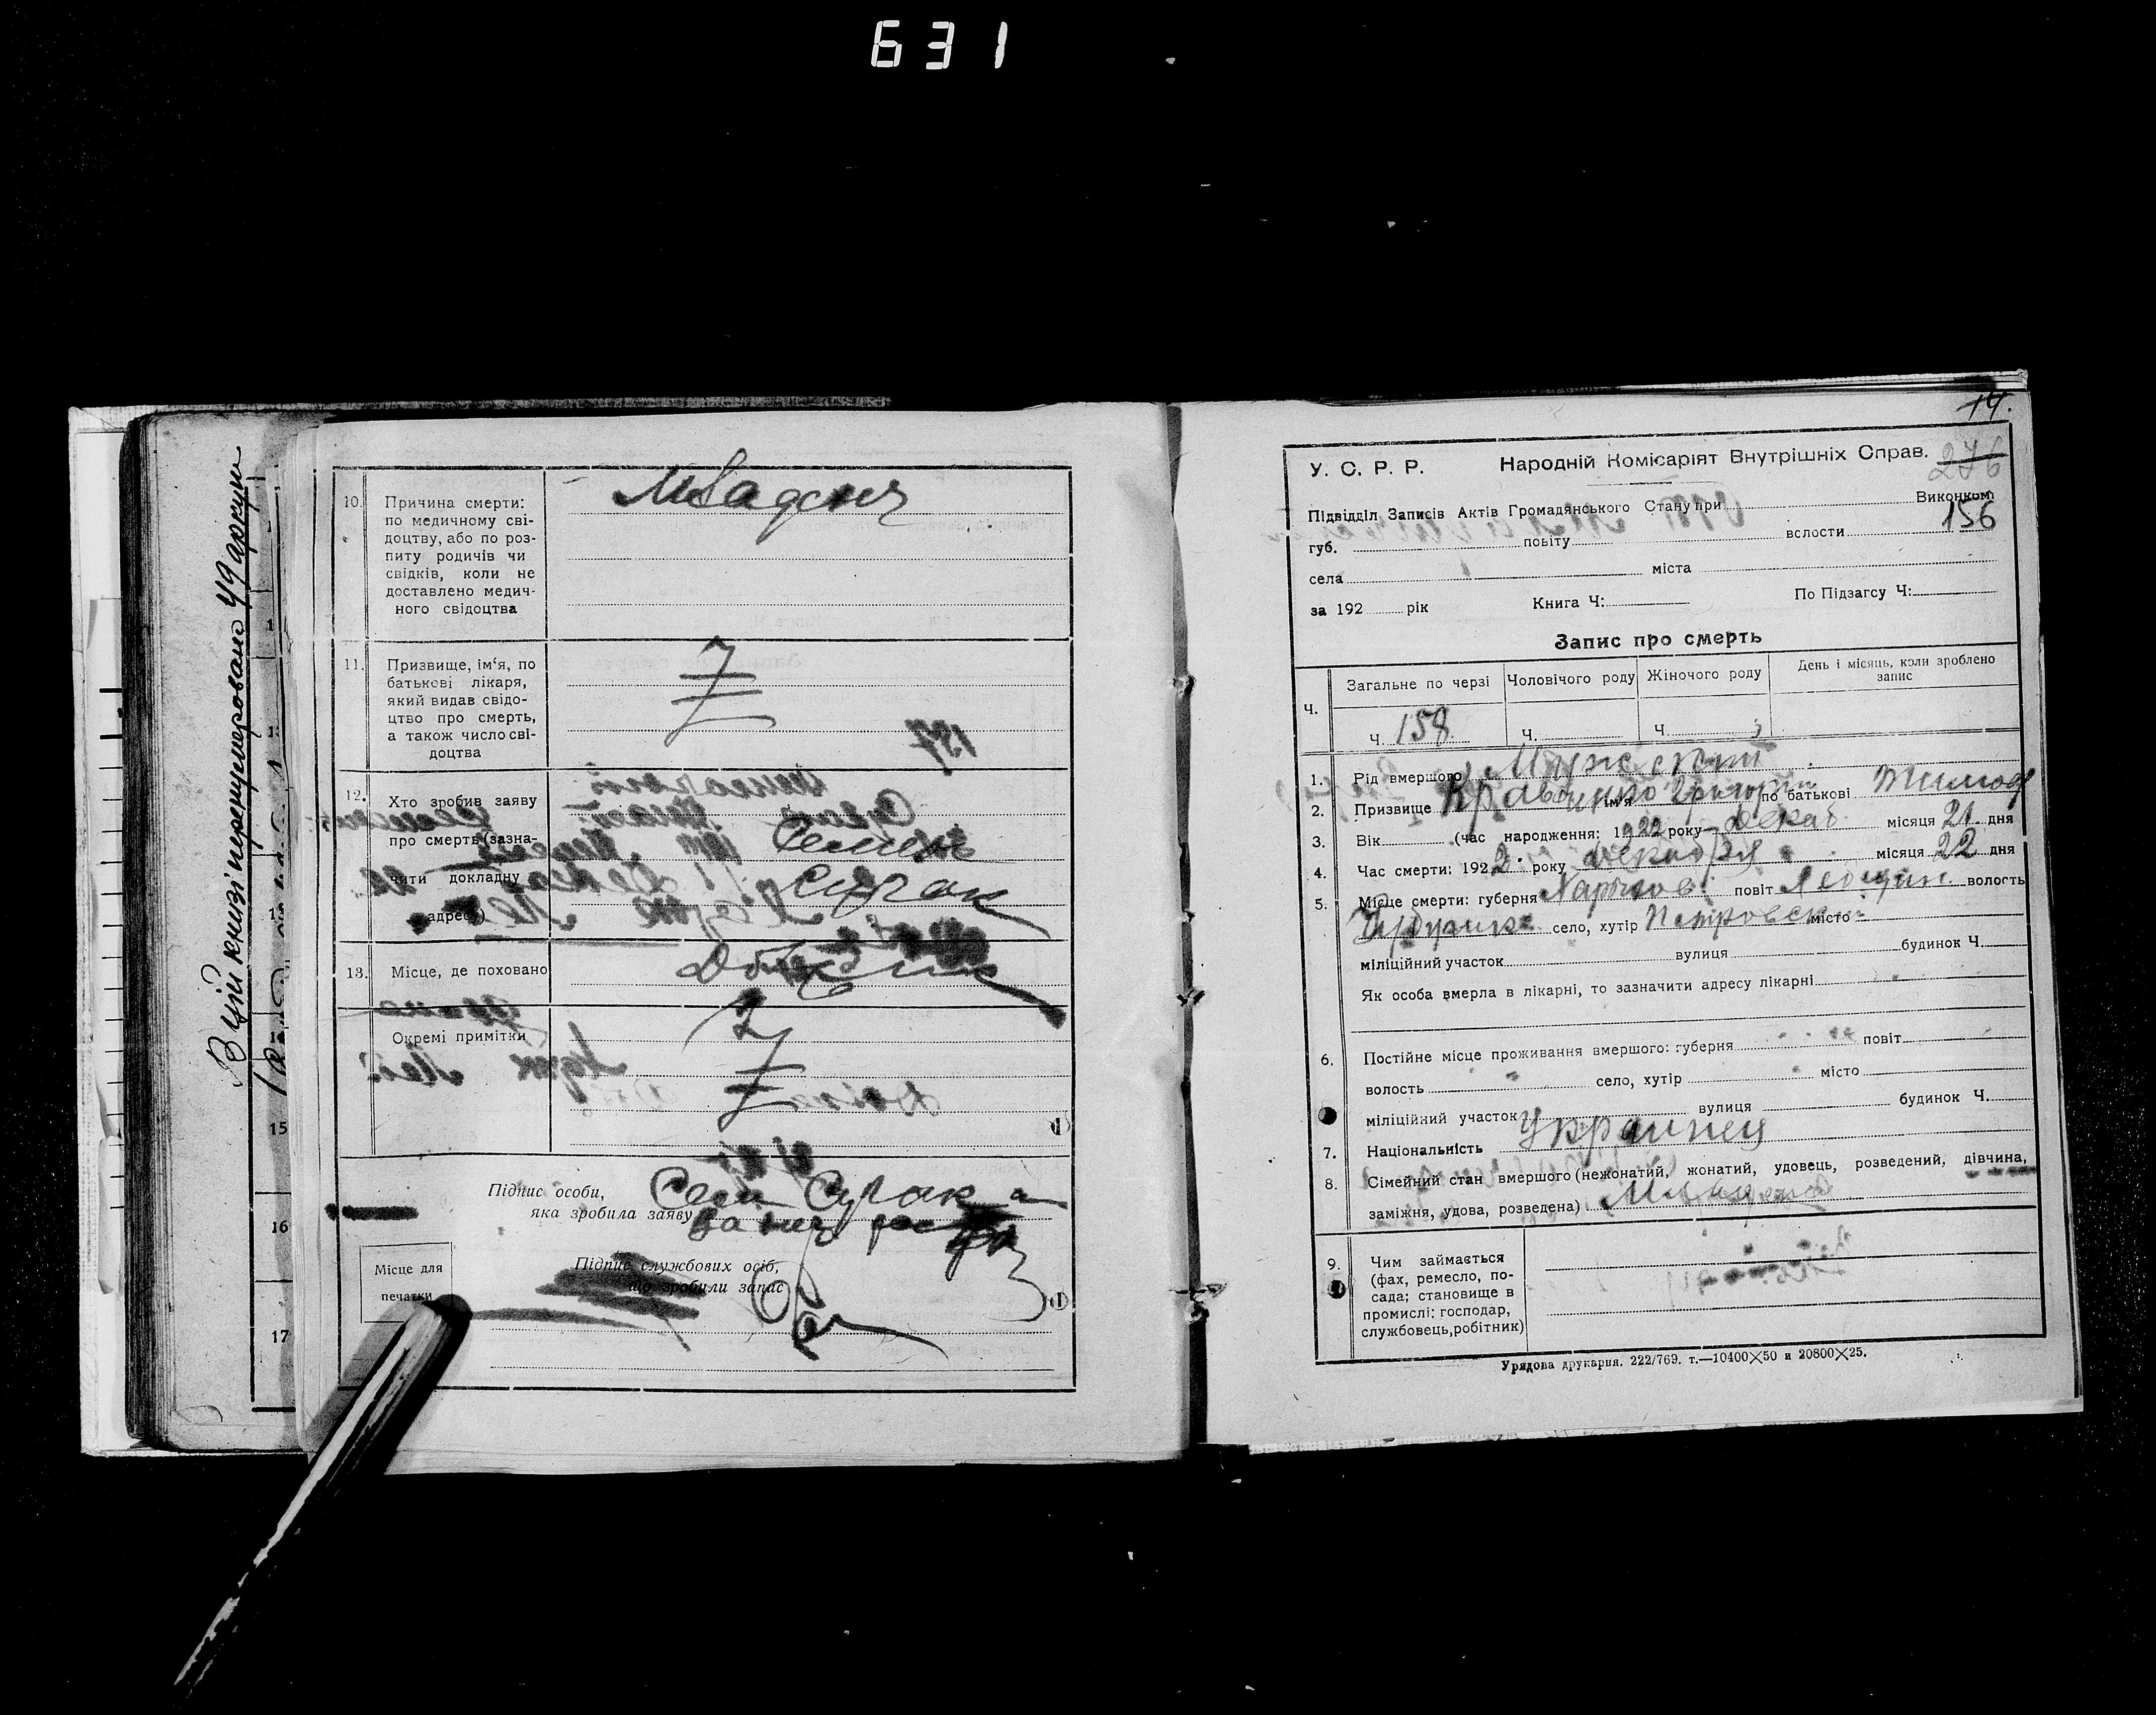 631
В цій книзі перенумеровано 49 аркуш
15
16
17
10. Причина смерти:
по медичному сві-
доцтву, або по роз-
питу родичів чи
свідків, коли не
доставлено медич-
ного свідоцтва
Младенч
11. Призвище, ім'я, по
батькові лікаря,
який видав свідо-
цтво про смерть,
а також число сві-
доцтва
12. Хто зробив заяву
про смерть (зазна-
чити докладну
адресу)
Семен
13. Місце, де поховано
Окремі примітки
Підпис особи,
яка зробила заяву
Підпис службових осіб,
що зробили запис
Місце для
печатки
14.
У. С. Р. Р. Народній Комісаріят Внутрішніх Справ. 276
Підвідділ Записів Актів Громадянського Стану при Виконком
156
губ. повіту волости
села міста
за 192 рік Книга Ч: По Підзагсу Ч:
Запис про смерть
Ч. Загальне по черзі Чоловічого роду Жіночого роду День і місяць, коли зроблено запис
Ч. 158 Ч. Ч.
1. Рід вмершого Мужеский
2. Призвище Кравченко ім'я Григорій по батькові Тимоф
3. Вік (час народження: 1922 року декаб місяця 21 дня
4. Час смерти: 1922 року декабря місяця 22 дня
5. Місце смерти: губерня Харьков повіт Лебедин волость
село, хутір Петровский місто
міліційний участок вулиця будинок Ч.
Як особа вмерла в лікарні, то зазначити адресу лікарні
6. Постійне місце проживання вмершого: губерня повіт
волость село, хутір місто
міліційний участок вулиця будинок Ч.
7. Національність Украинец
8. Сімейний стан вмершого (нежонатий, жонатий, удовець, розведений, дівчина,
заміжня, удова, розведена)
9. Чим займається
(фах, ремесло, по-
сада; становище в
промислі: господар,
службовець, робітник)
Урядова друкарня. 222/769. т.—10400×50 и 20800×25.